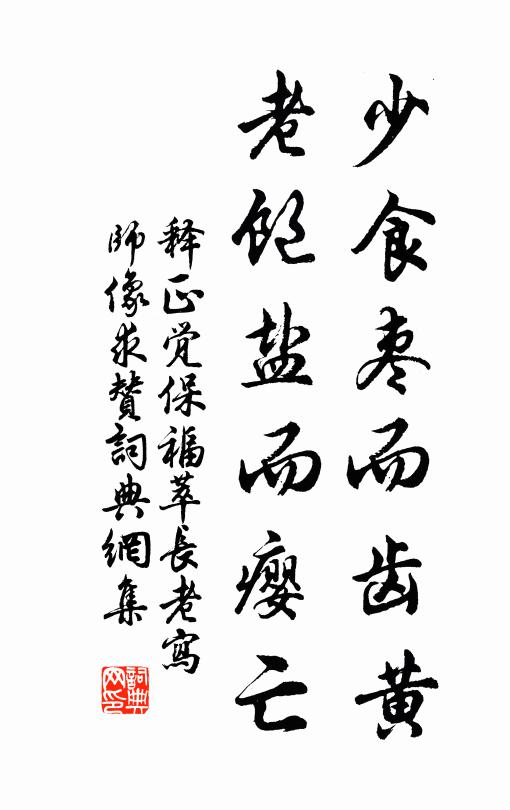 少食枣而齿黄
老饱盐而瘿亡
释正觉保福萃长老写
师像求赞词典網集
詞典
网印